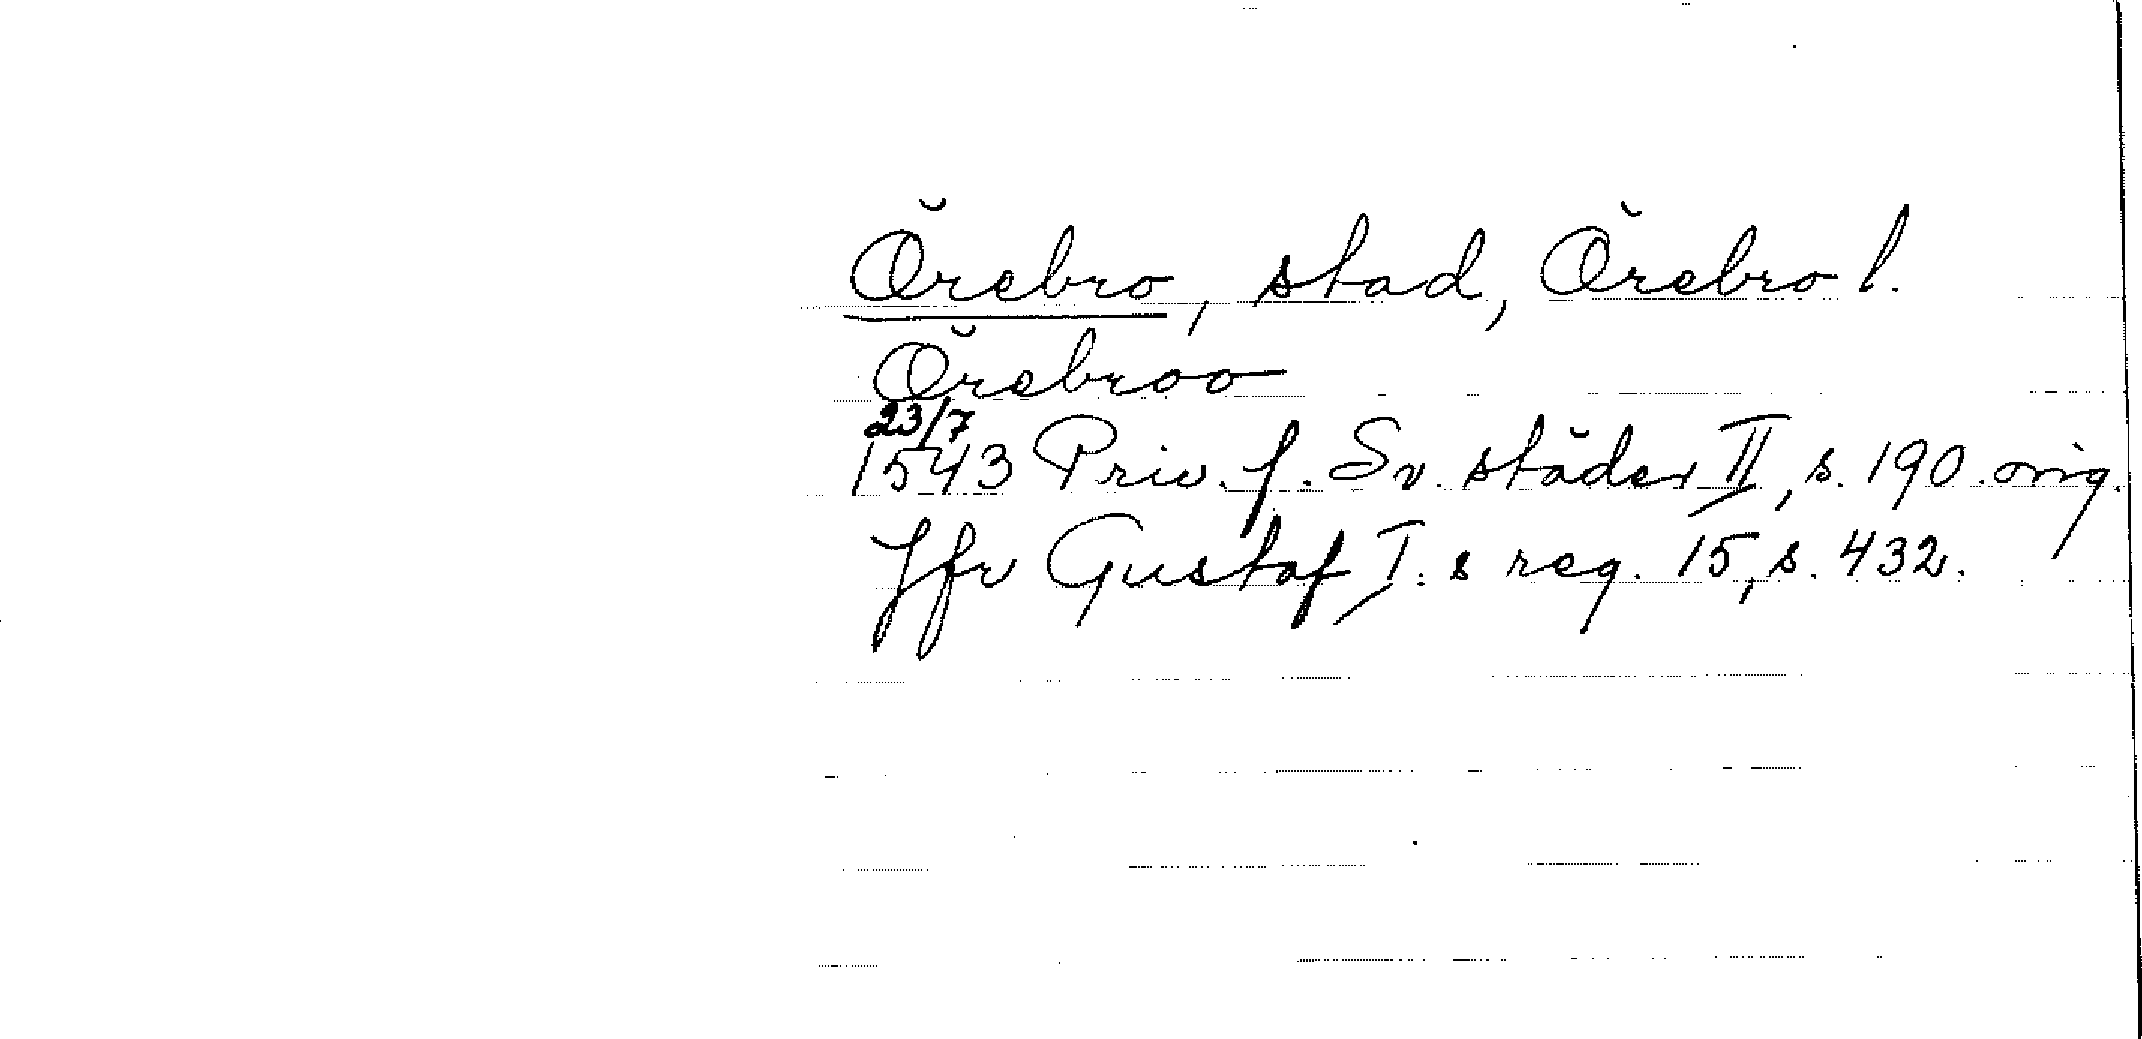 Örebro, stad, Örebro l.
Örebroo
23/7
1543 Priv. f. Sv. städer II, s. 190. orig.
Jfr Gustaf I:s reg. 15, s. 432.